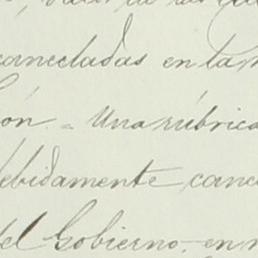 canceladas en la
ón. = Una rúbrica
debidamente canc
del Gobierno, en